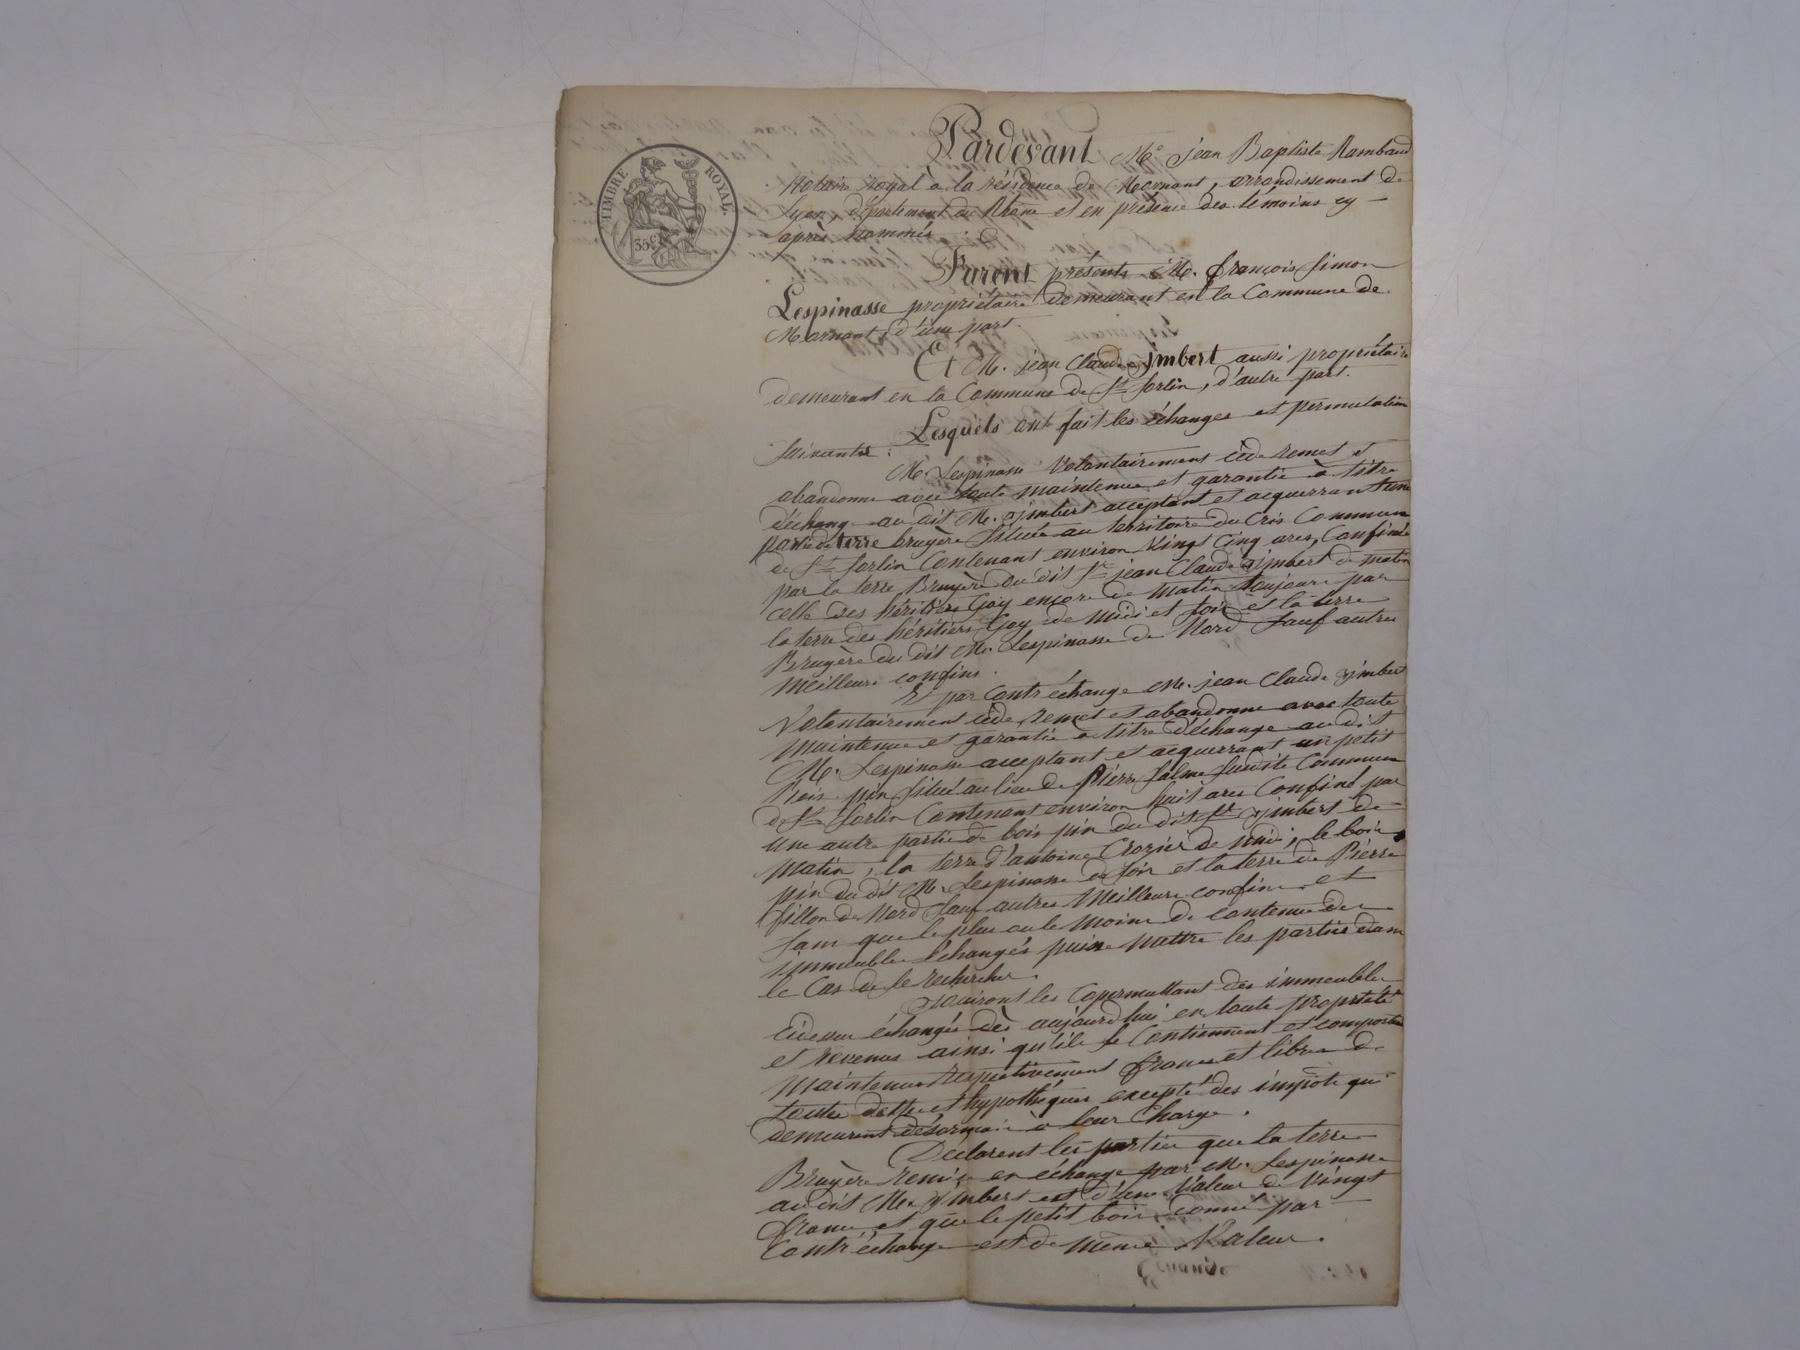 TIMBRE ROYAL.
35c
Pardevant Me jean Baptiste Rambaud
Notaire royal à la résidence de Mornant, arrondissement de
Lyon, département du Rhône et en présence des témoins cy
après nommés
Furent présents M. françois Simon
Lespinasse propriétaire demeurant en la Commune de
Mornant, d'une part.
Et M. jean Claude jmbert aussi propriétaire
demeurant en la Commune de St Sorlin, d'autre part.
Lesquels ont fait les échanges et permutation
Suivants :
M. Lespinasse Volontairement cède remet et
abandonne avec toute maintenue et garantie à titre
d'échange au dit M. jmbert acceptant et acquerrant une
partie de terre bruyère Située au territoire du Cris Commune
de St Sorlin Contenant environ Vingt Cinq ares, Confinée
par la terre Bruyère du dit Sr jean Claude jmbert de matin
celle des héritiers Goy encore de Matin toujours par
la terre des héritiers Goy de Midi et soir et la terre
Bruyère du dit M. Lespinasse de Nord Sauf autres
Meilleurs confins.
Et par Contréchange M. jean Claude jmbert
Volontairement cède, remet et abandonne avec toute
Maintenue et garantie à titre d'échange au dit
M. Lespinasse acceptant et acquerrant un petit
Bois pin Situé au lieu de Pièrre Salme Susdite Commune
de St Sorlin Contenant environ huit ares Confiné par
une autre partie de bois pin du dit Sr jmbert de
Matin, la terre d'antoine Crozier de midi, le bois
pin du dit M. Lespinasse de Soir et la terre de Pièrre
fillon de Nord Sauf autres Meilleurs confins et
Sans que le plus ou le Moins de contenue des
immeubles échangés puisse Mettre les parties dans
le Cas de Se rechercher.
Jouiront les Copermuttans des immeubles
Cidessus échangés dès aujourd'hui en toute propriété
et revenus ainsi qu'ils Se Contiennent et comportent
Maintenus respectivement francs et libres de
toutes dettes et hyppothèques excepté des impôts qui
demeurent désormais à leur Charge.
Déclarent les parties que la terre
Bruyère remise en échange par M. Lespinasse
au dit M. jmbert est d'une Valeur de Vingt
francs et que le petit bois donné par
Contr'échange est de même Valeur.